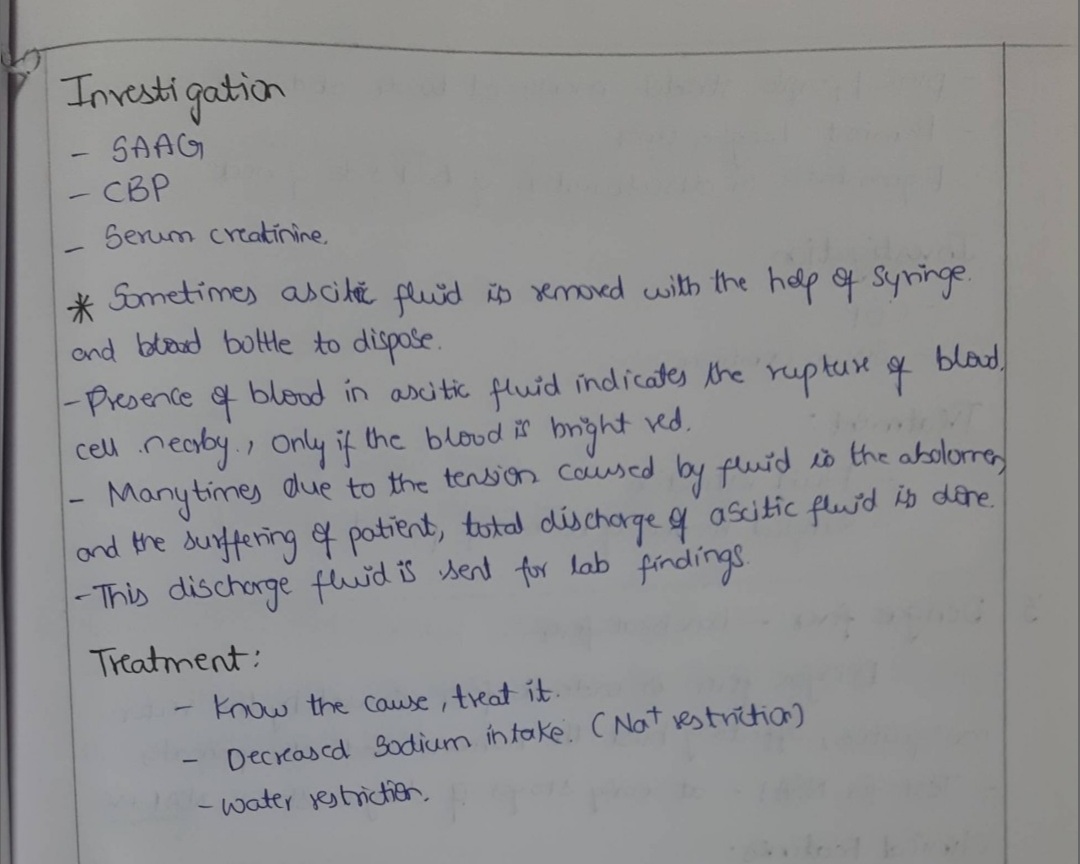 Investigation
- SAAG
- CBP
- Serum creatinine.
* Sometimes ascitic fluid is removed with the help of syringe.
and blood bottle to dispose.
- Presence of blood in ascitic fluid indicates the rupture of blood.
cell nearby., only if the blood is bright red.
- Manytimes due to the tension caused by fluid is the abolomen
and the surffering of patient, total discharge of ascitic fluid is done.
- This discharge fluid is sent for lab findings.
Treatment:
- Know the cause, treat it.
- Decreased Sodium intake. (Na+ restriction)
- water restriction.